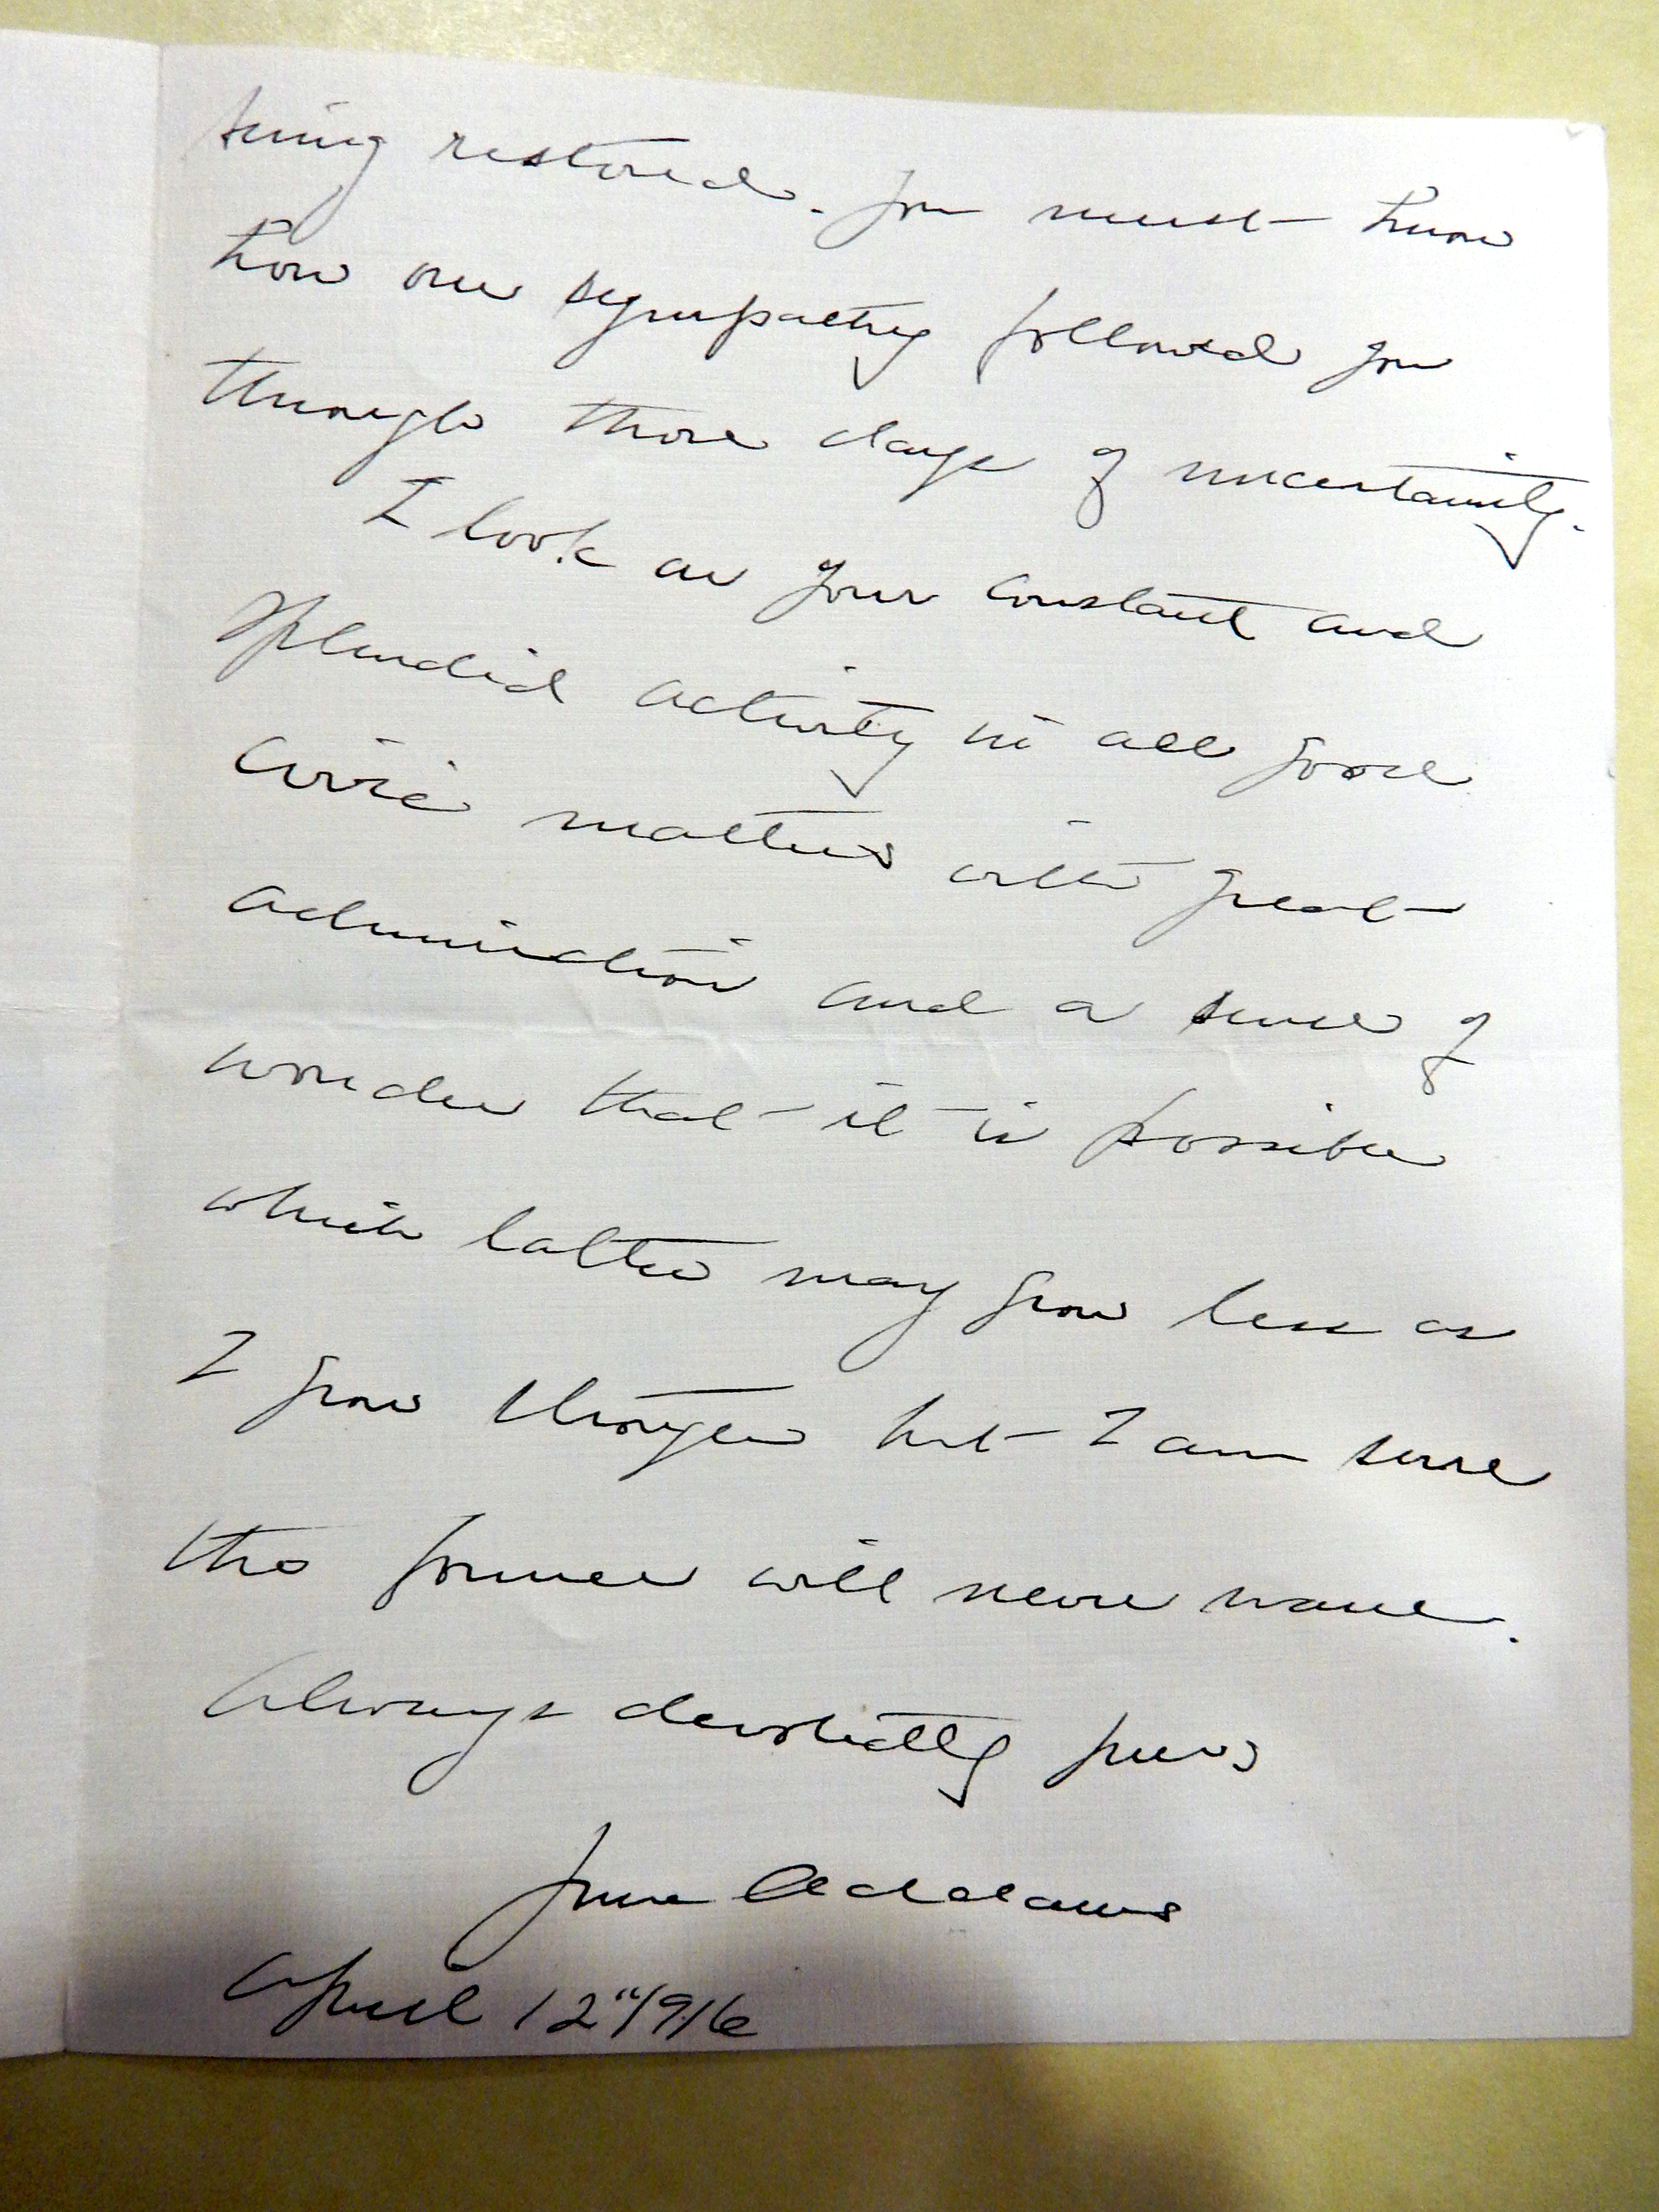 being restored. You must know
how our sympathy followed you
through those days of uncertainty.
I look on your constant and
splendid activity in all good
civic matters with great
admiration and a sense of
wonder that it is possible
which latter may grow less as
I grow stronger but I am sure
the former will never wane.
Always devotedly yours
Jane Addams
April 12" 1916